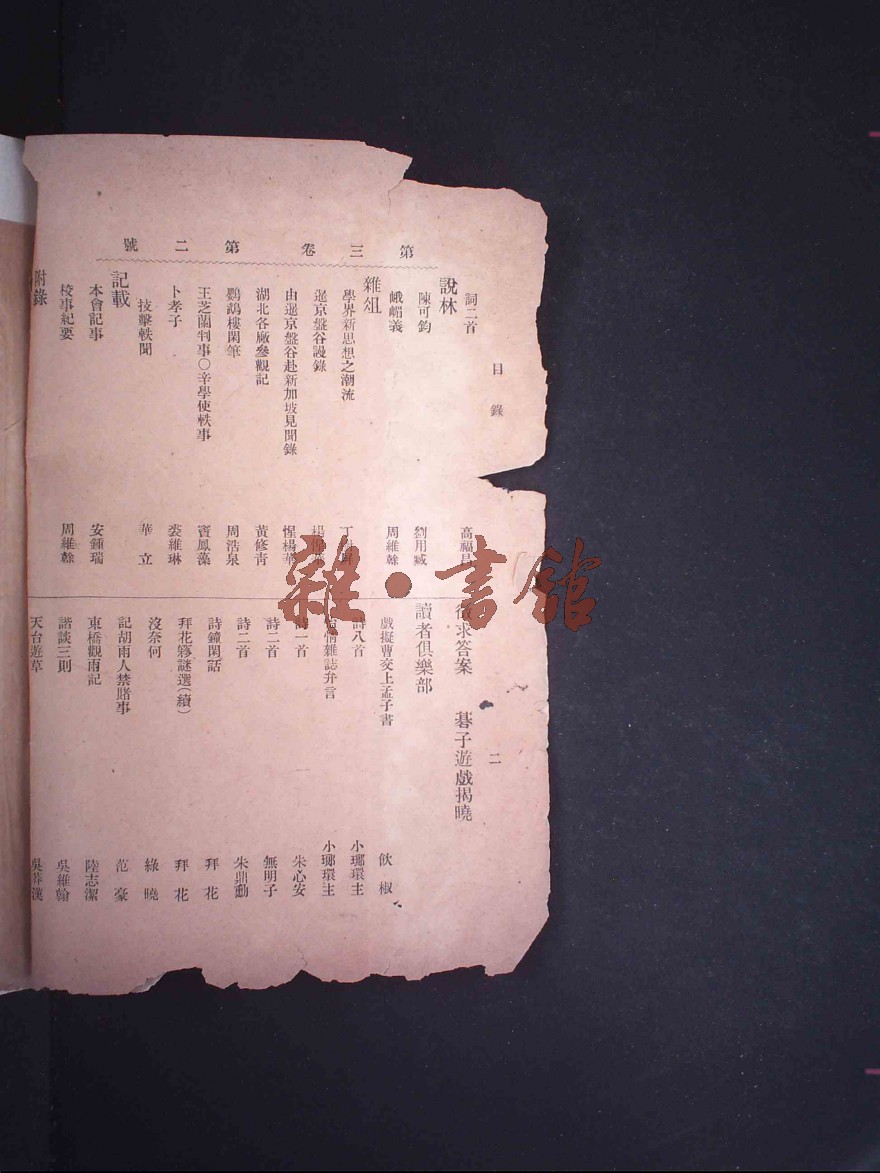 目錄
二
第三卷第二號
詞二首 高福
說林
陳可鈞 劉用臧
峨嵋義 周維榦
雜俎
學界新思想之潮流 丁
暹京盤谷謾錄 楊
由暹京盤谷赴新加坡見聞錄 惺楊華
湖北各廠參觀記 黃修靑
鸚鵡樓閑筆 周浩泉
王芝蘭判事〇辛學使軼事 竇鳳藻
卜孝子 裘維琳
技擊軼聞 華立
記載
本會記事 安鍾瑞
校事紀要 周維榦
附錄
徵求答案 碁子遊戲揭曉
讀者俱樂部
戲擬曹交上孟子書 飲椒
詩八首 小瑯環主
雜誌弁言 小瑯環主
詩一首 朱心安
詩二首 無明子
詩二首 朱鼎勳
詩鐘閑話 拜花
拜花簃謎選(續) 拜花
沒奈何 綠曉
記胡雨人禁賭事 范豪
東橋觀雨記 陸志潔
諧談三則 吳維翰
天台遊草 吳莽漢
雜·書館